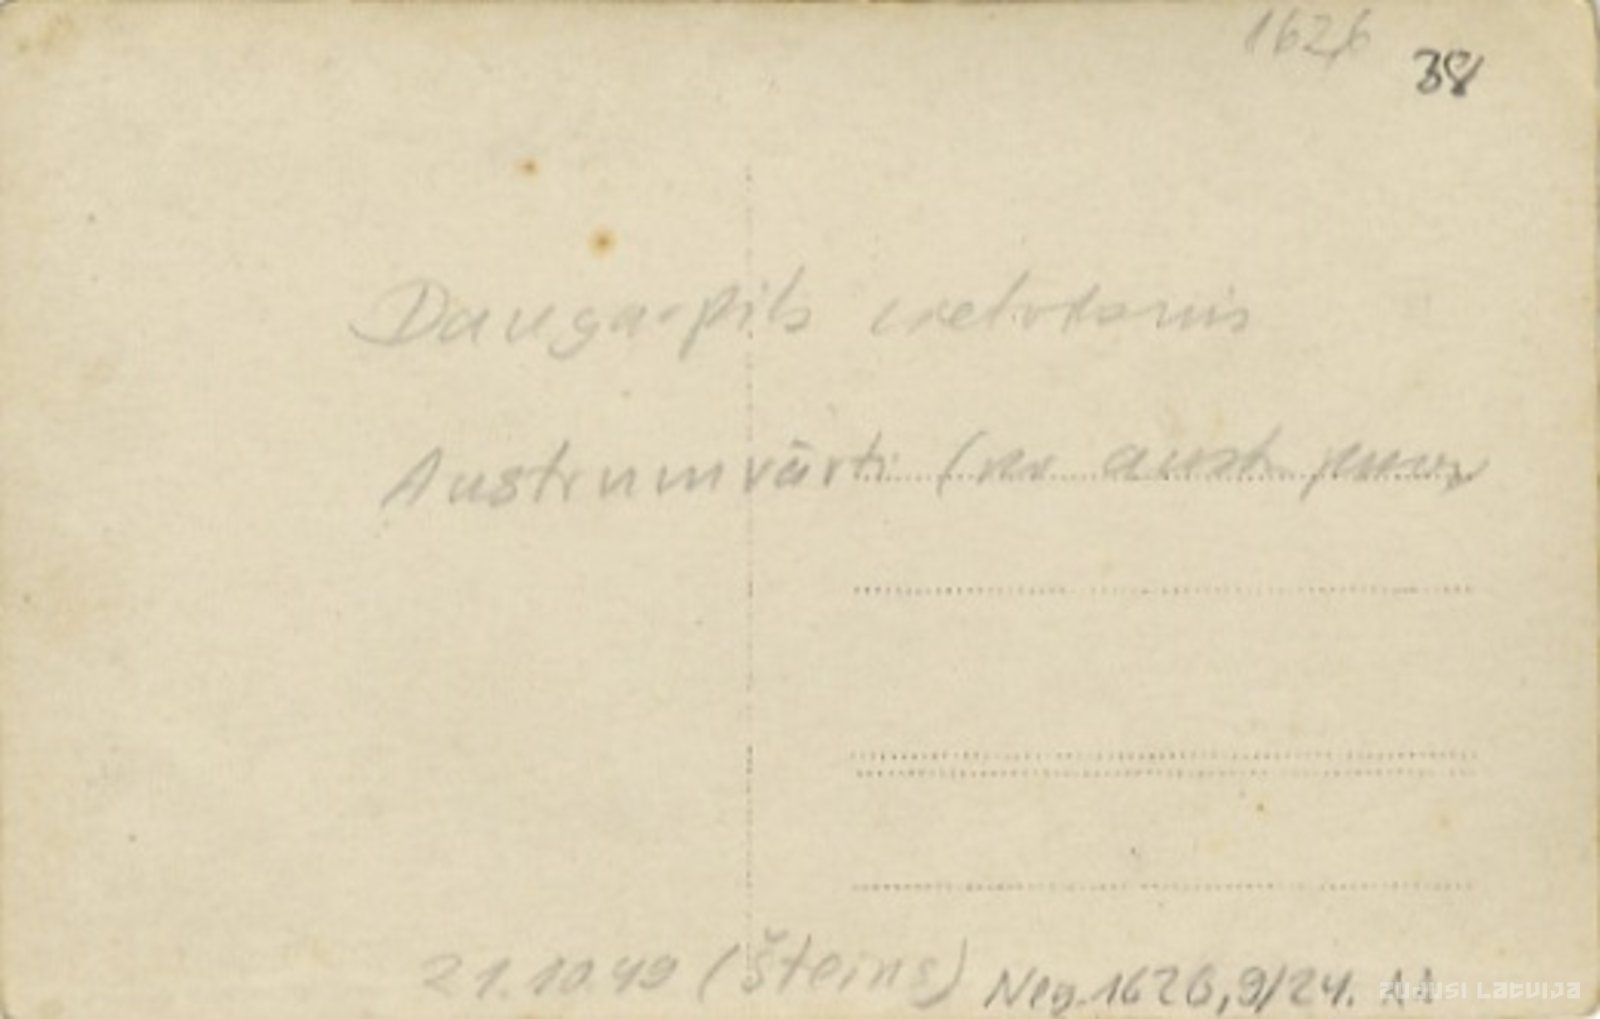 1626
38
Daugavpils cietoksnis
Austrumvārti (no austr. puses
21.10.49 (Šteins) Neg. 1626,9/24.
ZUDUSI LATVIJA